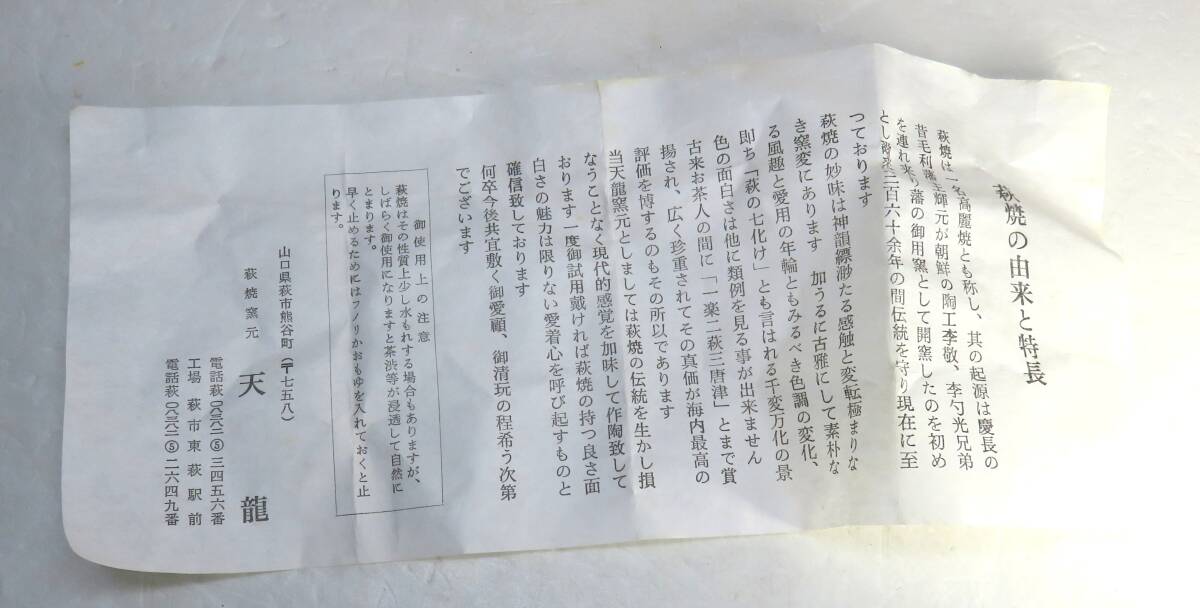 萩焼の由来と特長
萩焼は一名高麗焼とも称し、其の起源は慶長の
昔毛利藩主輝元が朝鮮の陶工李敬、李勺光兄弟
を連れ来り藩の御用窯として開窯したのを初め
とし 三百六十余年の間伝統を守り現在に至
つております
萩焼の妙味は神韻縹渺たる感触と変転極まりな
き窯変にあります 加うるに古雅にして素朴な
る風趣と愛用の年輪ともみるべき色調の変化、
即ち「萩の七化け」とも言はれる千変万化の景
色の面白さは他に類例を見る事が出来ません
古来お茶人の間に「一楽二萩三唐津」とまで賞
揚され、広く珍重されてその真価が海内最高の
評価を博するのもその所以であります
当天龍窯元としましては萩焼の伝統を生かし損
なうことなく現代的感覚を加味して作陶致して
おります一度御試用戴ければ萩焼の持つ良さ面
白さの魅力は限りない愛着心を呼び起すものと
確信致しております
何卒今後共宜敷く御愛顧、御清玩の程希う次第
でございます
御使用上の注意
萩焼はその性質上少し水もれする場合もありますが、
しばらく御使用になりますと茶渋等が浸透して自然に
とまります。
早く止めるためにはフノリかおもゆを入れておくと止
ります。
山口県萩市熊谷町(〒七五八)
萩焼窯元 天龍
電話萩〇八三八二⑤三四五六番
工場 萩市東萩駅前
電話萩〇八三八二⑤二六四九番